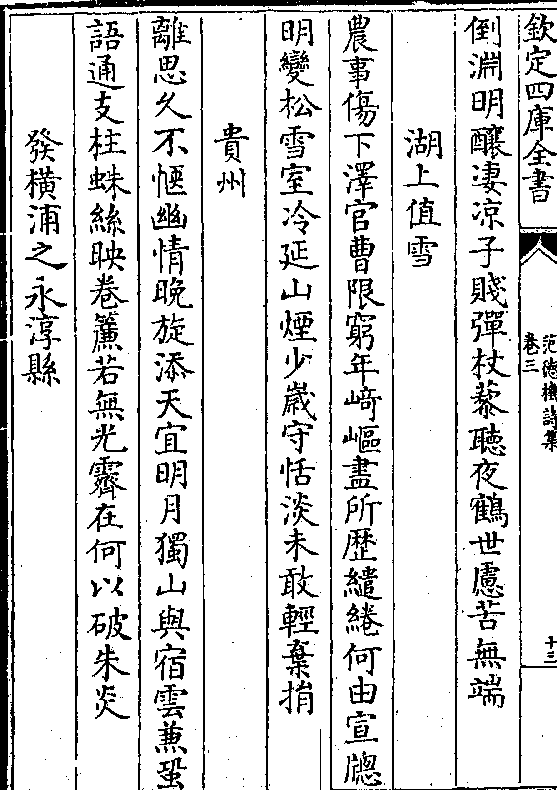 欽定四庫全書
范德機詩集
卷三
十三
倒淵明釀淒涼子賤彈杖藜聽夜鶴世慮苦無端
湖上值雪
農事傷下澤官曹限窮年﨑嶇盡所歴繾綣何由宣牕
明變松雪室冷延山煙少嵗守恬淡未敢輕棄捐
貴州
離思久不愜幽情晚旋添天宜明月獨山與宿雲兼蛩
語通支柱蛛絲映卷簾若無光霽在何以破朱炎
發橫浦之永淳縣